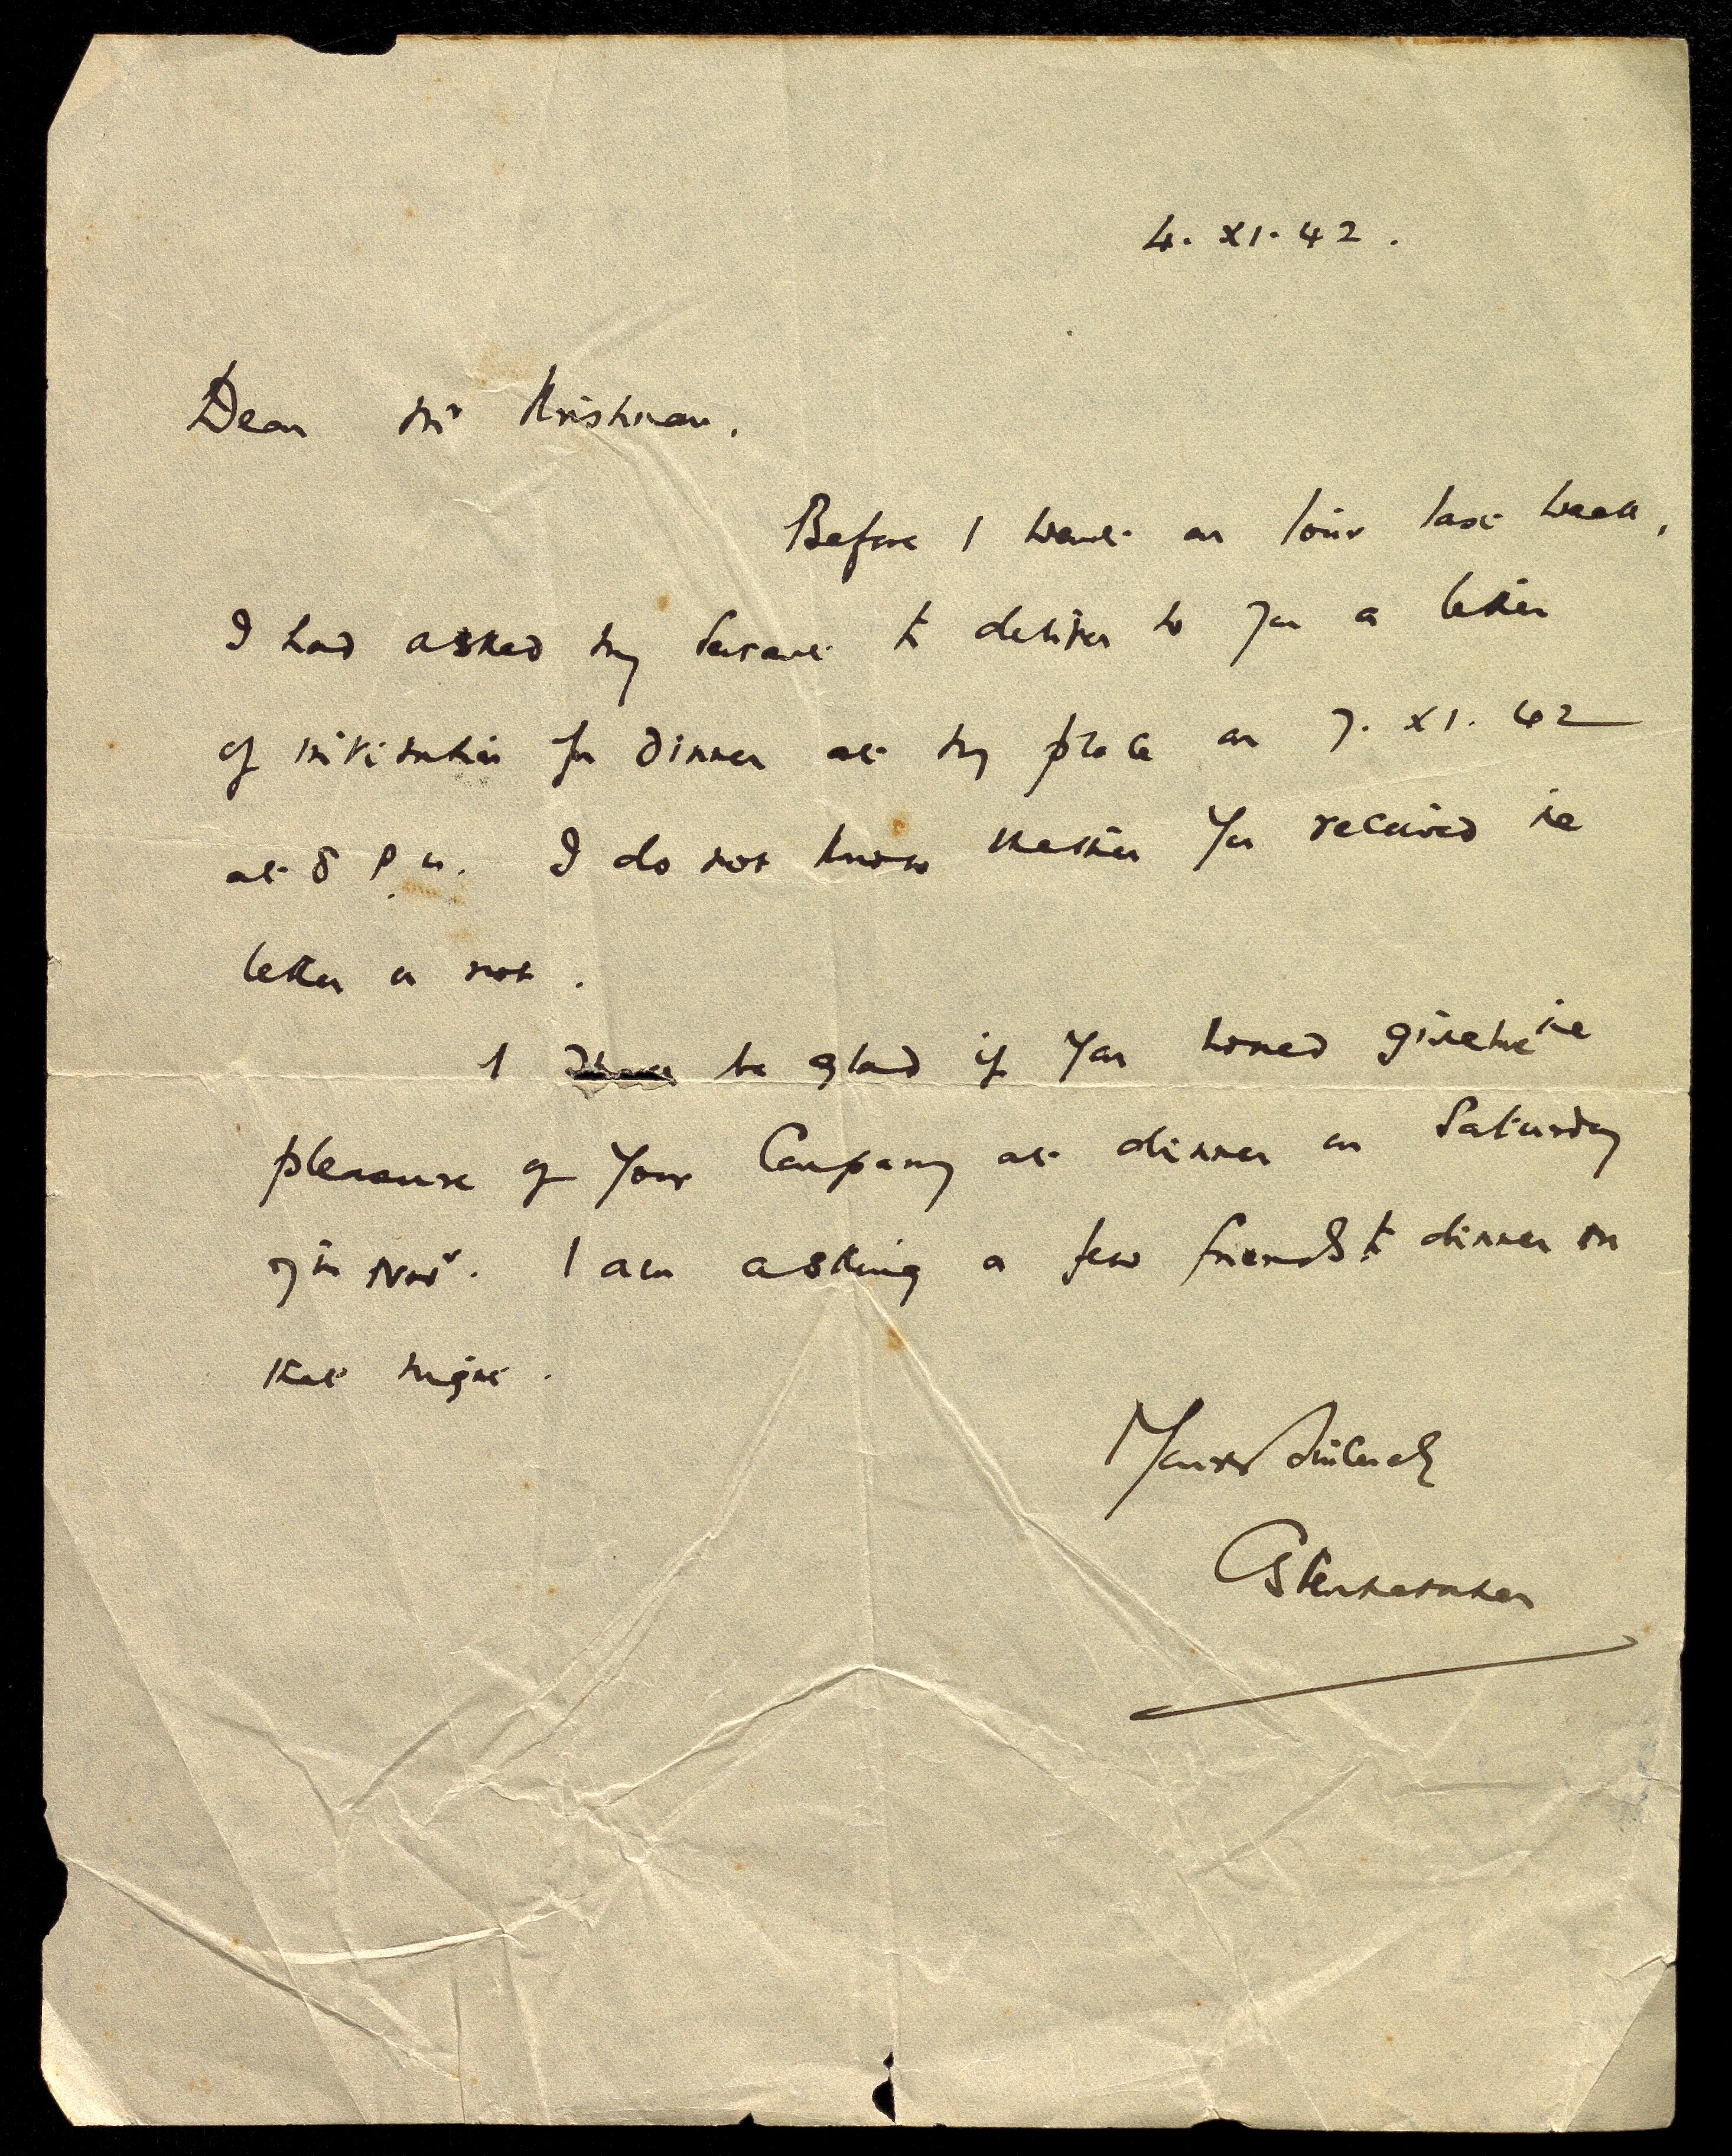 4. XI. 42.
Dear Mr Krishnan,
Before I went on tour last week,
I had asked my servant to deliver to you a letter
of invitation for dinner at my place on 7. XI. 42
at 8 P.M. I do not know whether you received the
letter or not.
I be glad if you would give me the
pleasure of your Company at dinner on Saturday
7th Novr. I am asking a few friends to dinner on
that night.
Yours sincerely